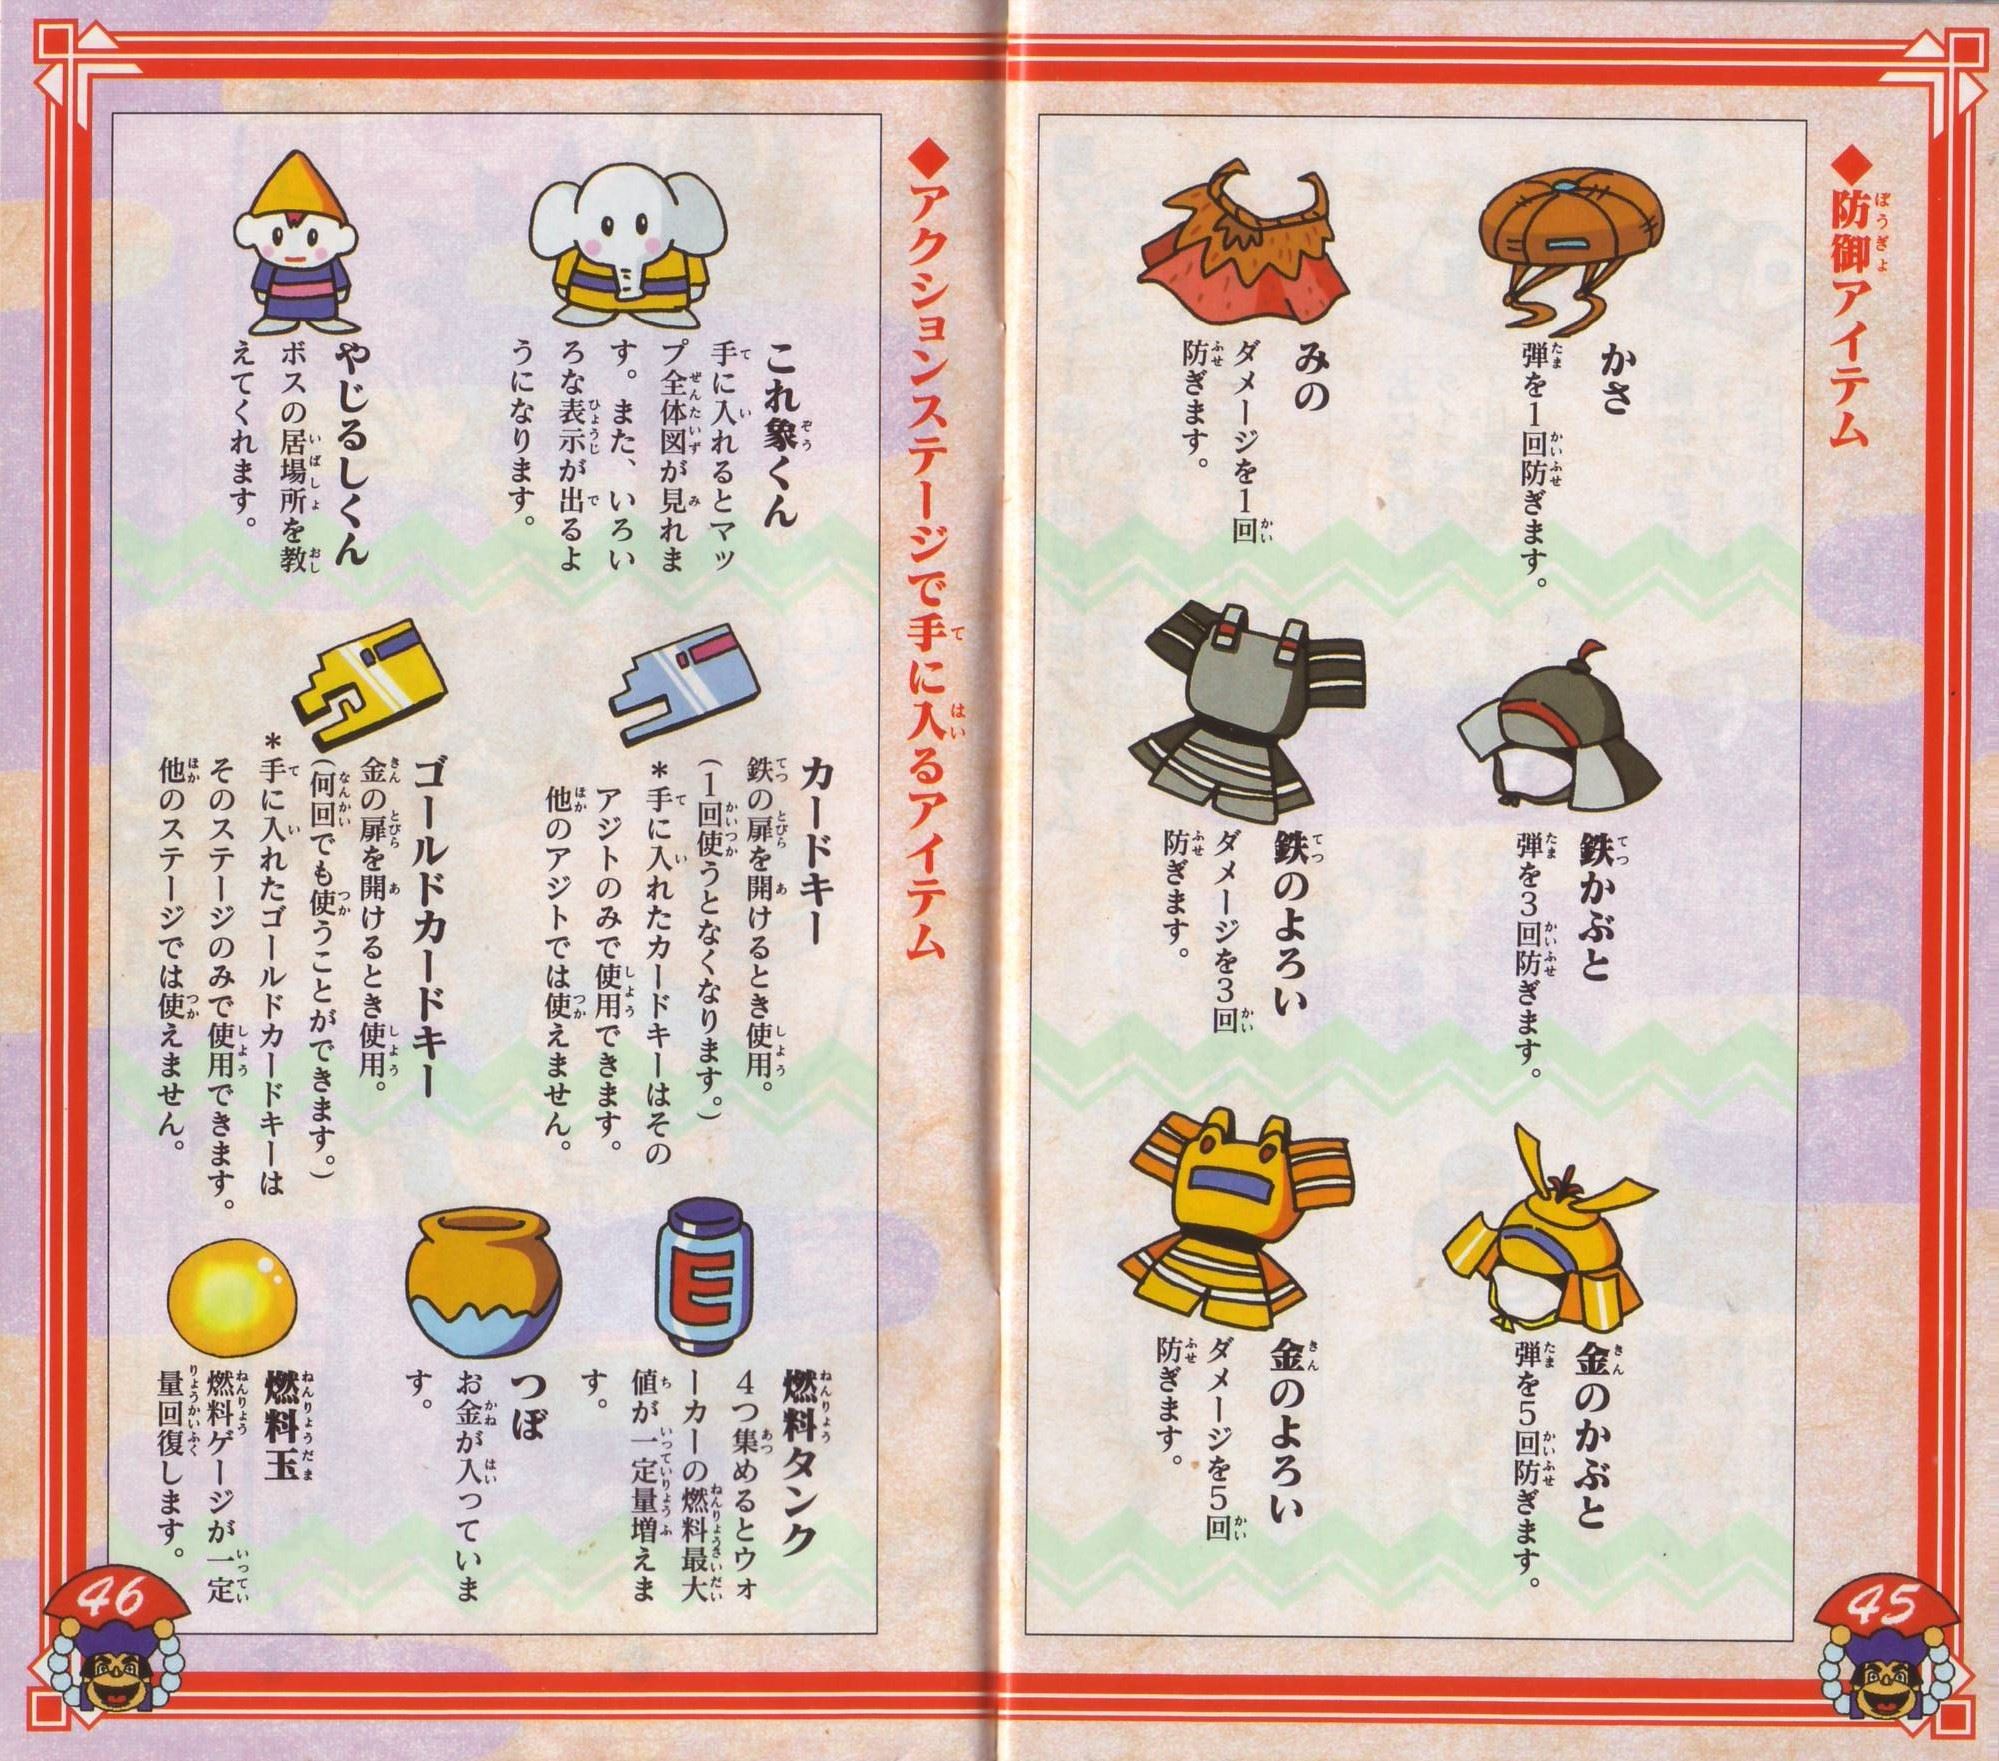 ◆防御アイテム
かさ
弾を1回防ぎます。
みの
ダメージを1回
防ぎます。
鉄かぶと
弾を3回防ぎます。
鉄のよろい
ダメージを3回
防ぎます。
金のかぶと
弾を5回防ぎます。
金のよろい
ダメージを5回
防ぎます。
45
◆アクションステージで手に入るアイテム
これ象くん
手に入れるとマッ
プ全体図が見れま
す。また、いろい
ろな表示が出るよ
うになります。
やじるしくん
ボスの居場所を教
えてくれます。
カードキー
鉄の扉を開けるとき使用。
(1回使うとなくなります。)
＊手に入れたカードキーはその
アジトのみで使用できます。
他のアジトでは使えません。
ゴールドカードキー
金の扉を開けるとき使用。
(何回でも使うことができます。)
＊手に入れたゴールドカードキーは
そのステージのみで使用できます。
他のステージでは使えません。
E
燃料タンク
4つ集めるとウォ
ーカーの燃料最大
値が一定量増えま
す。
つぼ
お金が入っていま
す。
燃料玉
燃料ゲージが一定
量回復します。
46